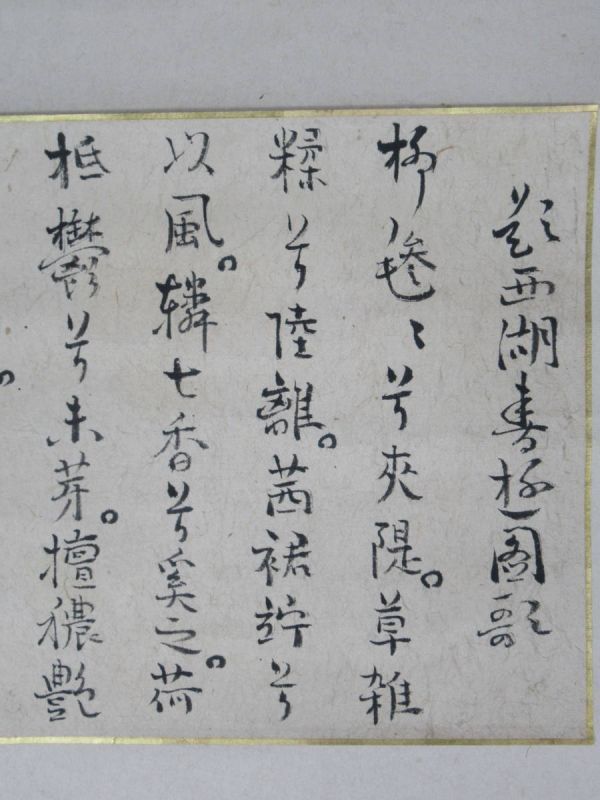 題西湖春遊圖歌
柳毿〻兮夾隄。草雜
糅兮陸離。茜裙竚兮
以風。轔七香兮奚之。荷
柢鬱兮未芽。擅穠艷